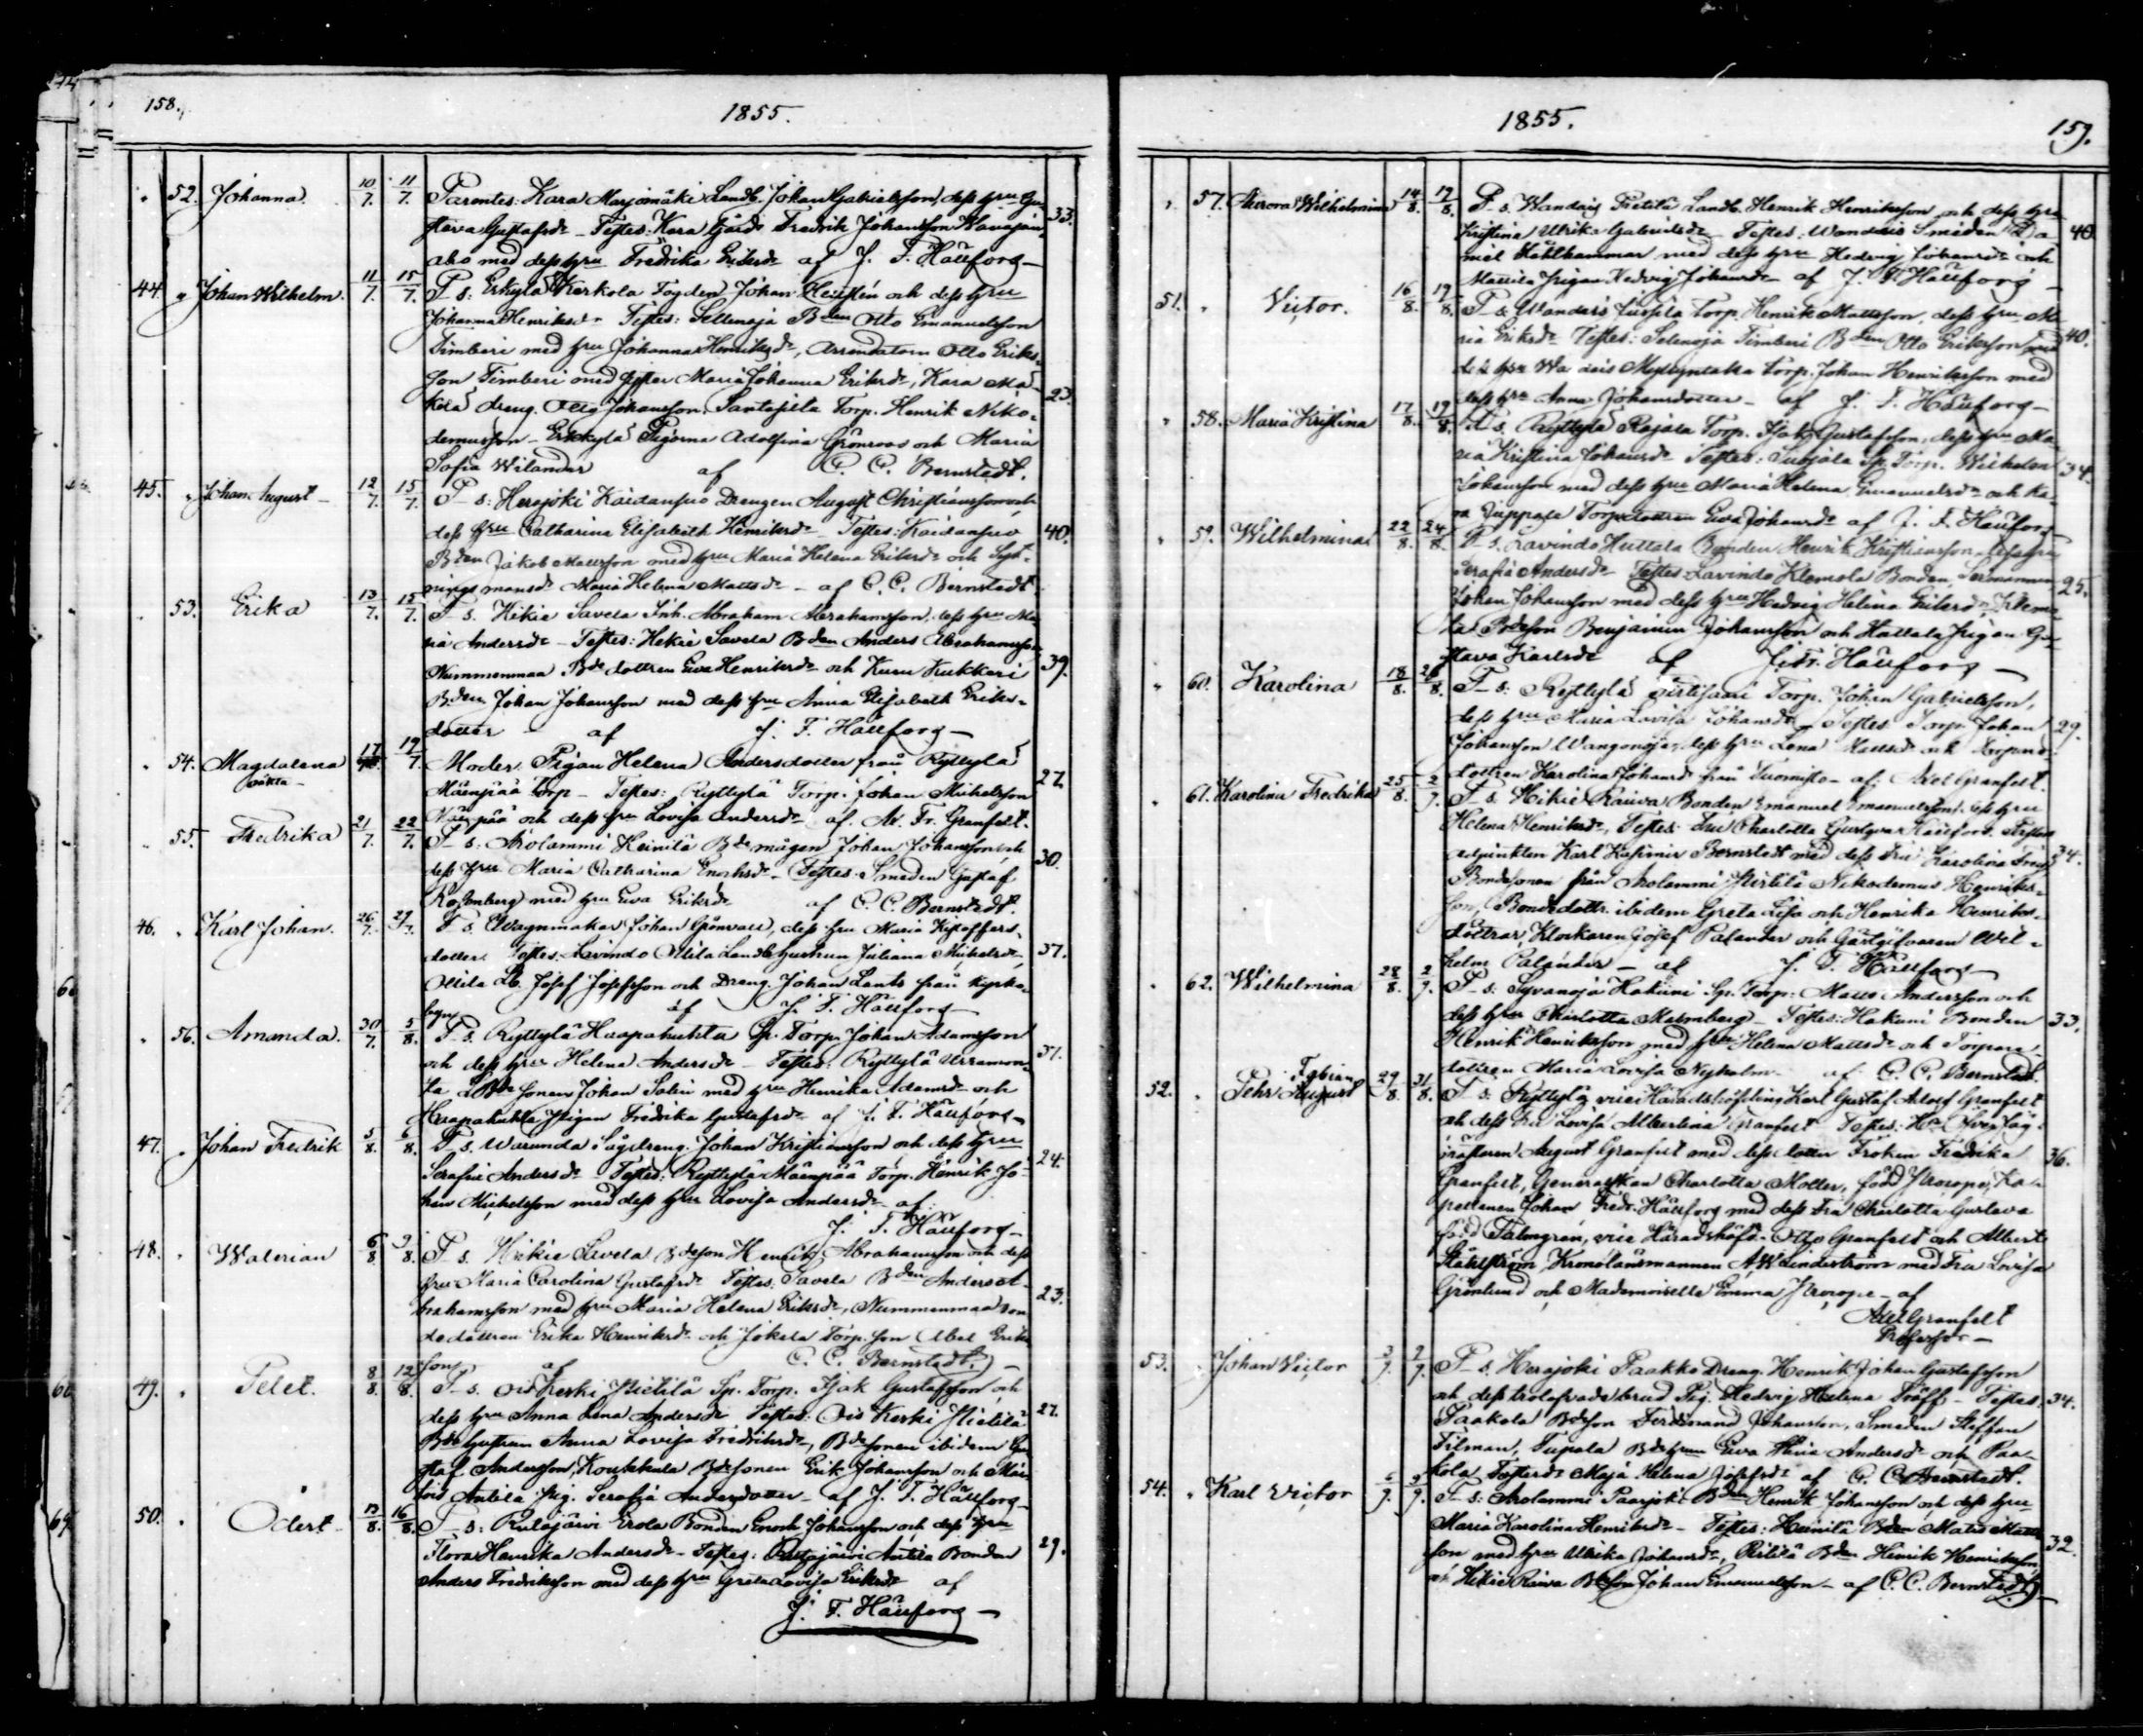 158.
1855.
52. Johanna. 10/7. 11/7. Parentes: Kara Marjomäki Landb. Johan Gabrielsson, dess hru Gu- 33.
stava Gustafsdr – Testes: Kara Gårds Fredrik Johansson
med dess hru Fredrika Eriksdr af J. F. Hällfors –
44 Johan Wilhelm. 11/7. 15/7. P–s: Erkylä Kerkola Fogden Johan och dess hru
Johanna Henriksdr – Testes: Sellenoja Bden Otto Emanuelsson
Timberi med hru Johanna Henriksdr, Arrendatorn Otto Eriks-
son Timberi med syster Maria Johanna Eriksdr, Kara Ma- 23.
kela dreng. Otto Johansson, Santasilta Torp. Henrik Niko-
demusson – Erkkylä Pigorna Adolfina Grönroos och Maria
Sofia Wilander af C. C. Bernstedt.
45. Johan August – 12/7. 15/7. P–s: Herajoki Kaidansuo Drengen August Christiansson och
dess hru Catharina Elisabeth Henriksdr – Testes: Kaidansuo 40.
Bden Jakob Mattsson med hru Maria Helena Eriksdr och Syt-
ningsmansdr Maria Helena Mattsdr – af C. C. Bernstedt
53. Erika 13/7. 15/7. P–s. Hikie Savela Inh. Abraham Abrahamsson, dess hru Ma-
ria Andersdr – Testes: Hikie Savela Bden Anders Abrahamsson
Nummenmaa Bdedottren Eva Henriksdr och Kuru Kukkeri 39.
Bden Johan Johansson med dess hru Anna Elisabeth Eriks-
dotter af J. F. Hällfors –
54. Magdalena 17/7. 19/7 Moder. Pigan Helena Andersdotter från Ryttylä
oäkta – Mäenpää Torp – Testes: Ryttylä Torp. Johan Mickelsson 27.
Mäenpää och dess hru Lovisa Andersdr af A. Fr. Granfelt.
55. Fredrika 21/7. 22/7. P–s: Arolammi Heinilä Bdemågen Johan Johansson och
dess hru Maria Catharina Enochsdr – Testes: Smeden Gustaf 30.
Rosenberg med hru Eva Eriksdr af C. C. Bernstedt.
46. Karl Johan. 26/7. 29/7. P–s. Wagnmakar Johan Grönvall, dess hru Maria Kistoffers-
dotter. Testes. Lavindo Ollila Landb hustrun Juliana Mickelsdr, 37.
Ollila Lb. Josef Josefsson och Dreng. Johan Lants från Kyrko-
byn af J. F. Hällfors –
56. Amanda. 30/7. 5/8. P–s. Ryttylä Haapahuhta Sp. Torp. Johan Adamsson
och dess hru Helena Andersdr – Testes: Ryttylä 31.
Bdesonen Johan Salin med hru Henrika Adamsdr och
Haapahuhta Pigan Fredrika Gustafsdr af J. F. Hällfors –
47. Johan Fredrik 5/8. 6/8. P–s. Warunda Sågdreng. Johan Kristiansson och dess hru
Serafia Andersdr – Testes: Ryttylä Mäenpää Torp. Henrik Jo- 24.
han Mickelsson med dess hru Lovisa Andersdr – af
J. F. Hällfors –
48. Walerian 6/8 9/8. P–s. Hikie Savela Bdeson Henrik Abrahamsson och dess
hru Maria Carolina Gustafsdr Testes. Savela Bden Anders A-
brahamsson med hru Maria Helena Eriksdr, Nummenmaa Bon- 23.
dedottren Erika Henriksdr och Jokela Torp.son Abel Eriks
son af C. C. Bernstedt. –
49. Petet. 8/8. 12/8. P–s. Ois Keski Pietilä Sp. Torp. Isak Gustafsson, och
dess hru Anna Lena Andersdr Testes: Ois Keski Pietilä 27.
Bde hustrun Anna Lovisa Fredriksdr, Bdesonen ibidem Gu-
staf Andersson, Koukkula Bdesonen Erik Johansson och
Antila Pig. Serafia Andersdotter – af J. F. Hällfors –
50. Odert – 13/8. 16/8. P–s: Rutajärvi Erola Bonden Enoch Johansson och dess hru
Flora Henrika Andersdr – Testes: Rutajärvi Antila Bonden 29.
Anders Fredriksson med dess hru Greta Lovisa Eriksdr af
J. F. Hällfors –
1855.
159.
57. Aurora Wilhelmina 14/8. 19/8. P–s. Wandais Pietilä Landb. Henrik Henriksson och dess hru
Kristina Ulrika Gabrielsdr – Testes: Wandais Smeden Da- 40.
niel Kahlhammar med dess hru Hedvig Johansdr och
Mattila Pigan Hedvig Johansdr – af J. F. Hällfors –
51. Victor. 16/8. 19/8. P–s Wandais Torp. Henrik Mattsson, dess hru Ma-
ria Eriksdr Testes: Selenoja Timberi Bden Otto Eriksson med 40.
dess hru Torp. Johan Henriksson med
dess hru Anna Johansdotter – af J. F. Hällfors –
58. Maria Kristina 17/8. 19/8. P–s. Ryttylä Rajala Torp. Isak Gustafsson, dess hru Ma-
ria Kristina Johansdr Testes: Sp. Torp. Wilhelm 34.
Johansson med dess hru Maria Helena Emanuelsdr och Ka-
ra Torpedottren Eva Johansdr af J. F. Hällfors
59. Wilhelmina 22/8. 24/8. P–s. Lavindo Huttala Bonden Henrik Kristiansson, dess hru
Serafia Andersdr Testes: Lavindo Klemola Bonden, 25.
Johan Johansson med dess hru Hedvig Helena Eriksdr, Klemo-
la Bdeson Benjamin Johansson och Huttala Pigan Gu-
stava Karlsdr af J. F. Hällfors –
60. Karolina 18/8. 26/8. P–s: Ryttylä Torp. Johan Gabrielsson,
dess hru Maria Lovisa Johansdr – Testes Torp. Johan 29.
Johansson Wangonoja, dess hru Lena Mattsdr och
dottren Karolina Johansdr från Suomisto – af. Axel Granfelt.
61. Karolina Fredrika 25/8. 2/9. P–s. Hikie Räwä Bonden Emanuel Emanuelsson, dess hru
Helena Henriksdr, Testes: Fru Charlotta Gustava Hällfors.
adjunkten Karl Kasimir Bernstedt med dess Fru Karolina 34.
Bondesonen från Arolammi Pietilä Nikodemus Henriks-
son, Bondedottr. ibidem Greta Lisa och Henrika Henriks-
döttrar, Klockaren Josef Palander och Wil-
helm Palander – af J. F. Hällfors –
62. Wilhelmina 28/8. 2/9. P–s: Syvänoja Hakuni Sp. Torp: Matts Andersson och
dess hru Charlotta Malmberg – Testes: Hakuni Bonden 33.
Henrik Henriksson med hru Helena Mattsdr och Torpare-
dottren Maria Lovisa Nyholm – af C. C. Bernstedt.
52. Pehr August Fabian 29/8. 31/8. P–s. Ryttylä vice Häradshöfding Karl Gustaf Adolf Granfelt
och dess Fru Lovisa Albertina Granfelt Testes: Hr Öfverjäg-
mästaren August Granfelt med dess dotter Fröken Fredrika 36.
Granfelt, Generalskan Charlotta Moller, född Prorope, Ka-
pellanen Johan Fredr. Hällfors med dess Fru Charlotta Gustava
född Palmgren, vice Häradshöfd. Otto Granfelt och Albert
Ståhlström, Kronolänsmannen A W Linderström med Fru Lovisa
Grönlund och Mademoiselle Emma Prorope – af
Axel Granfelt
Professor –
53. Johan Victor 3/9. 7/9. P–s. Herajoki Paakko Dreng. Henrik Johan Gustafsson
och dess trolofvade brud Pig. Hedvig Helena Träff – Testes. 34.
Paakola Bdeson Ferdinand Johansson, Smeden Steffan
Tilman, Tupala Bdehrun Eva Maria Andersdr och Paa-
kola Maja Helena Josefsdr af C. C. Bernstedt.
54. Karl Victor 5/9. 9/9. P–s: Arolammi Paarjoki Bden Henrik Johansson och dess hru
Maria Karolina Henriksdr – Testes: Heinilä Bden Matts Matts-
son med hru Ulrika Johansdr, Pietilä Bden Henrik Henriksson 32.
och Hikie Räwä Bdeson Johan Emanuelsson – af C. C. Bernstedt –